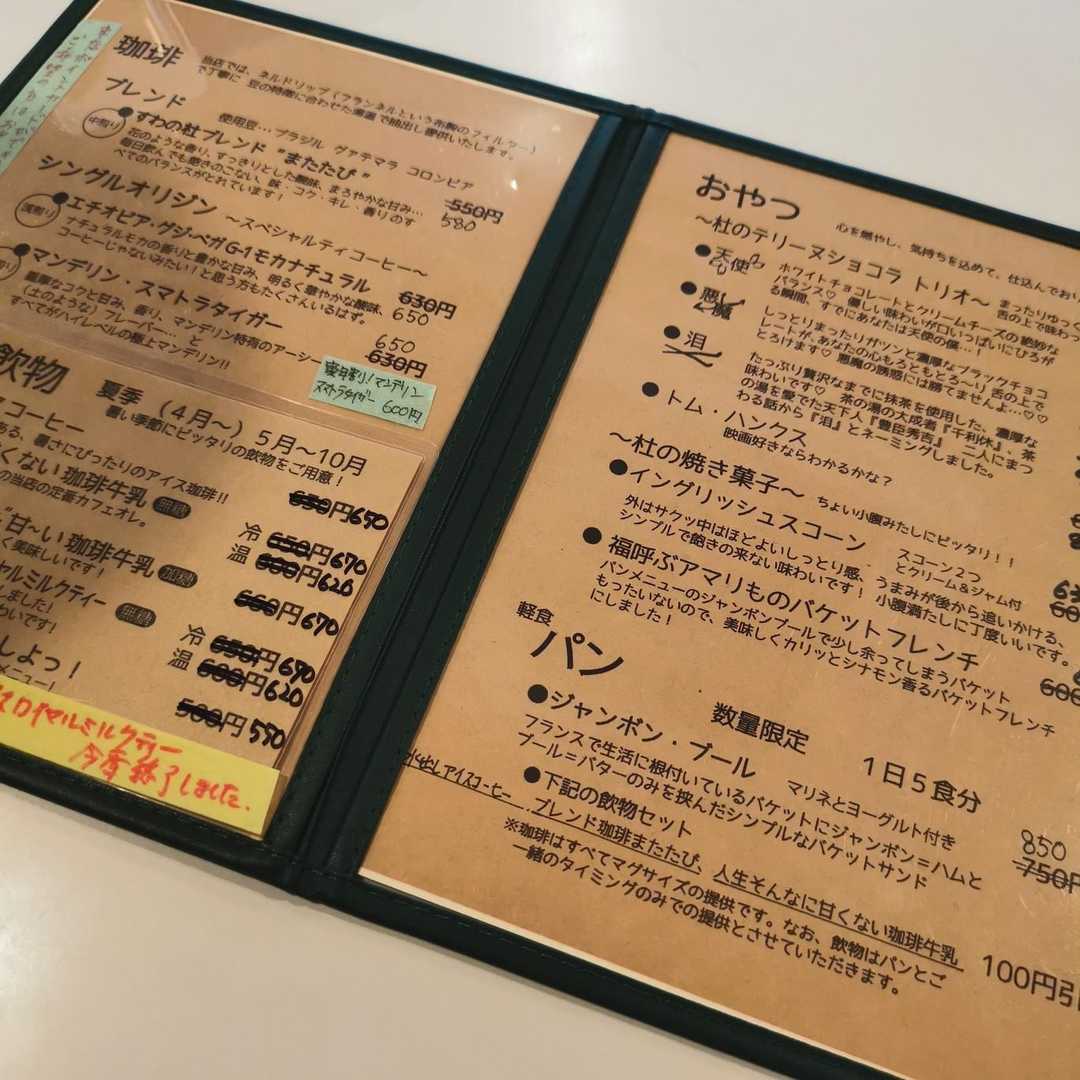 珈琲
当店では、ネルドリップ(フランネルという布製のフィルター)
で丁寧に 豆の特徴に合わせた湯温で抽出し提供いたします。
ブレンド
使用豆…ブラジル ヴァテマラ コロンビア
中煎り
すわの杜ブレンド "またたび"
550円
580
花のような香り、すっきりとした酸味、まろやかな甘み…
毎日飲んでも飽きのこない、味・コク・キレ・香りのす
べてのバランスがとれています!
シングルオリジン ～スペシャルティコーヒー～
エチオピア・グジ・ベガ G-1モカナチュラル
630円
650
ナチュラルモカの香りと豊かな甘み、明るく華やかな酸味、
コーヒーじゃないみたい!と思う方もたくさんいるはず。
マンデリン・スマトラタイガー
650
630円
重厚なコクと甘み、香り、マンデリン特有のアーシー
(土のような)フレーバー… と
すべてがハイレベルの極上マンデリン!!
マンデリン
スマトラタイガー 600円
飲物 夏季 (4月～) 5月～10月
暑い季節にピッタリの飲物をご用意!
コーヒー
650円650
ある、暑さにぴったりのアイス珈琲!!
くない 珈琲牛乳 無糖
冷 650円670
温 600円620
の当店の定番カフェオレ。
"甘～い 珈琲牛乳 加糖
660円670
く美味しいです!
ャルミルクティー 無糖
冷 650円670
温 600円620
しました!
わいです!
しよっ!
500円550
メニュー!
スロイヤルミルクティー
今季終了しました.
おやつ
心を燃やし、気持ちを込めて、仕込んでおり
～杜のテリーヌショコラ トリオ～
まったりゆっく
舌の上で味わっ
天使
ホワイトチョコレートとクリームチーズの絶妙な
バランス♡ 優しい味わいが口いっぱいにひろが
る瞬間、すでにあなたは天使の僕…!
悪魔
しっとりまったりガツンと濃厚なブラックチョコ
レートが、あなたの心もろともとろ～り 舌の上で
とろけます♡ 悪魔の誘惑には勝てませんよ…♡♡
泪
たっぷり贅沢なまでに抹茶を使用した、濃厚な
味わいです♡ 茶の湯の大成者『千利休』、茶
の湯を愛でた天下人『豊臣秀吉』、二人にまつ
わる話から『泪』とネーミングしました。
トム・ハンクス
映画好きならわかるかな?
～杜の焼き菓子～ ちょい小腹みたしにピッタリ!!
イングリッシュスコーン
スコーン2つ
とクリーム&ジャム付
外はサクッ中はほどよいしっとり感、うまみが後から追いかける、
シンプルで飽きの来ない味わいです! 小腹満たしに丁度いいです。
福呼ぶアマリものバケットフレンチ
600
パンメニューのジャンボンブールで少し余ってしまうバケット
もったいないので、美味しくカリッとシナモン香るバケットフレンチ
にしました!
軽食
パン 数量限定 1日5食分
ジャンボン・ブール マリネとヨーグルト付き
850
750円
フランスで生活に根付いているバケットにジャンボン=ハムと
ブール=バターのみを挟んだシンプルなバケットサンド
下記の飲物セット
100円引
アイスコーヒー、ブレンド珈琲またたび、人生そんなに甘くない珈琲牛乳
※珈琲はすべてマグサイズの提供です。なお、飲物はパンとご
一緒のタイミングのみでの提供とさせていただきます。